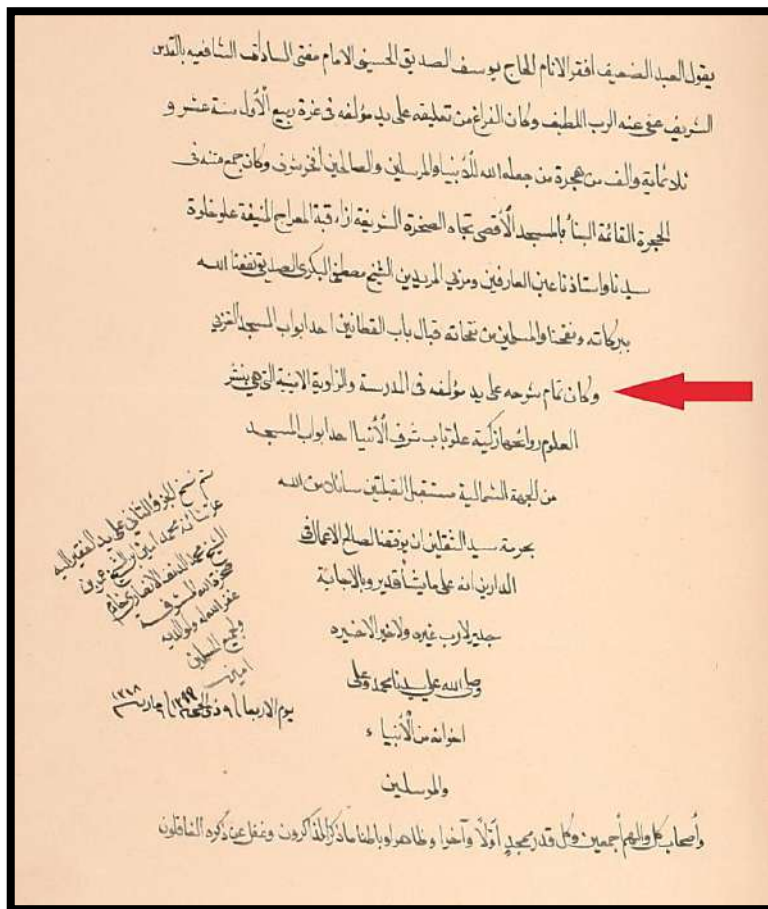 يقول العبد الضعيف افقر الانام الحاج يوسف الصديق الحسيني الامام مفتي السادات الشافعيه بالقدس
الشريف عفي عنه الرب اللطيف وكان الفراغ من تعليقه على يد مؤلفه في غرة ربيع الأول سنة عشر و
ثلاثماية والف من هجرة من جعله الله للأنبيا والمرسلين والصالحين افخر شرف وكان جمع متنه في
الحجرة القائمة البنا بالمسجد الأقصى تجاه الصخرة الشريفة ازاء قبة المعراج المنيفة علو خلوة
سيدنا واستاذنا عين العارفين ومربي المريدين الشيخ مصطفى البكري الصديقي نفعنا الله
ببركاته ونفحنا والمسلمين من نفحاته قبال باب القطانين احد ابواب المسجد الغربي
وكان تمام شرحه على يد مؤلفه في المدرسة والزاوية الامينية التي هي بنشر
العلوم روائحها زكية علو باب شرف الأنبيا احد ابواب المسجد
من الجهة الشمالية مستقبل القبلتين سائلا من الله
بحرمة سيد الثقلين ان يوفقنا لصالح الاعمال في
الدارين انه على ما يشأ قدير وبالاجابة
جدير لا رب غيره ولا خير الا خيره
وصلى الله على سيدنا محمد وعلى
اخوانه من الأنبياء
والمرسلين
وأصحاب كل والهم أجمعين وكل قدر ممجد أوّلاً وآخرا وظاهرا وباطنا ما ذكر الذاكرون وغفل عن ذكره الغافلون
تم نسخ الجزؤ الثاني على يد الفقير اليه
عز شانه محمد امين ابن الشيخ عمر بن
الشيخ محمد الدنف الانصاري خادم
صخرة الله المشرفة
غفر الله له ولوالديه
ولجميع المسلمين
امين
يوم الاربعا ٩ ذي الحجة